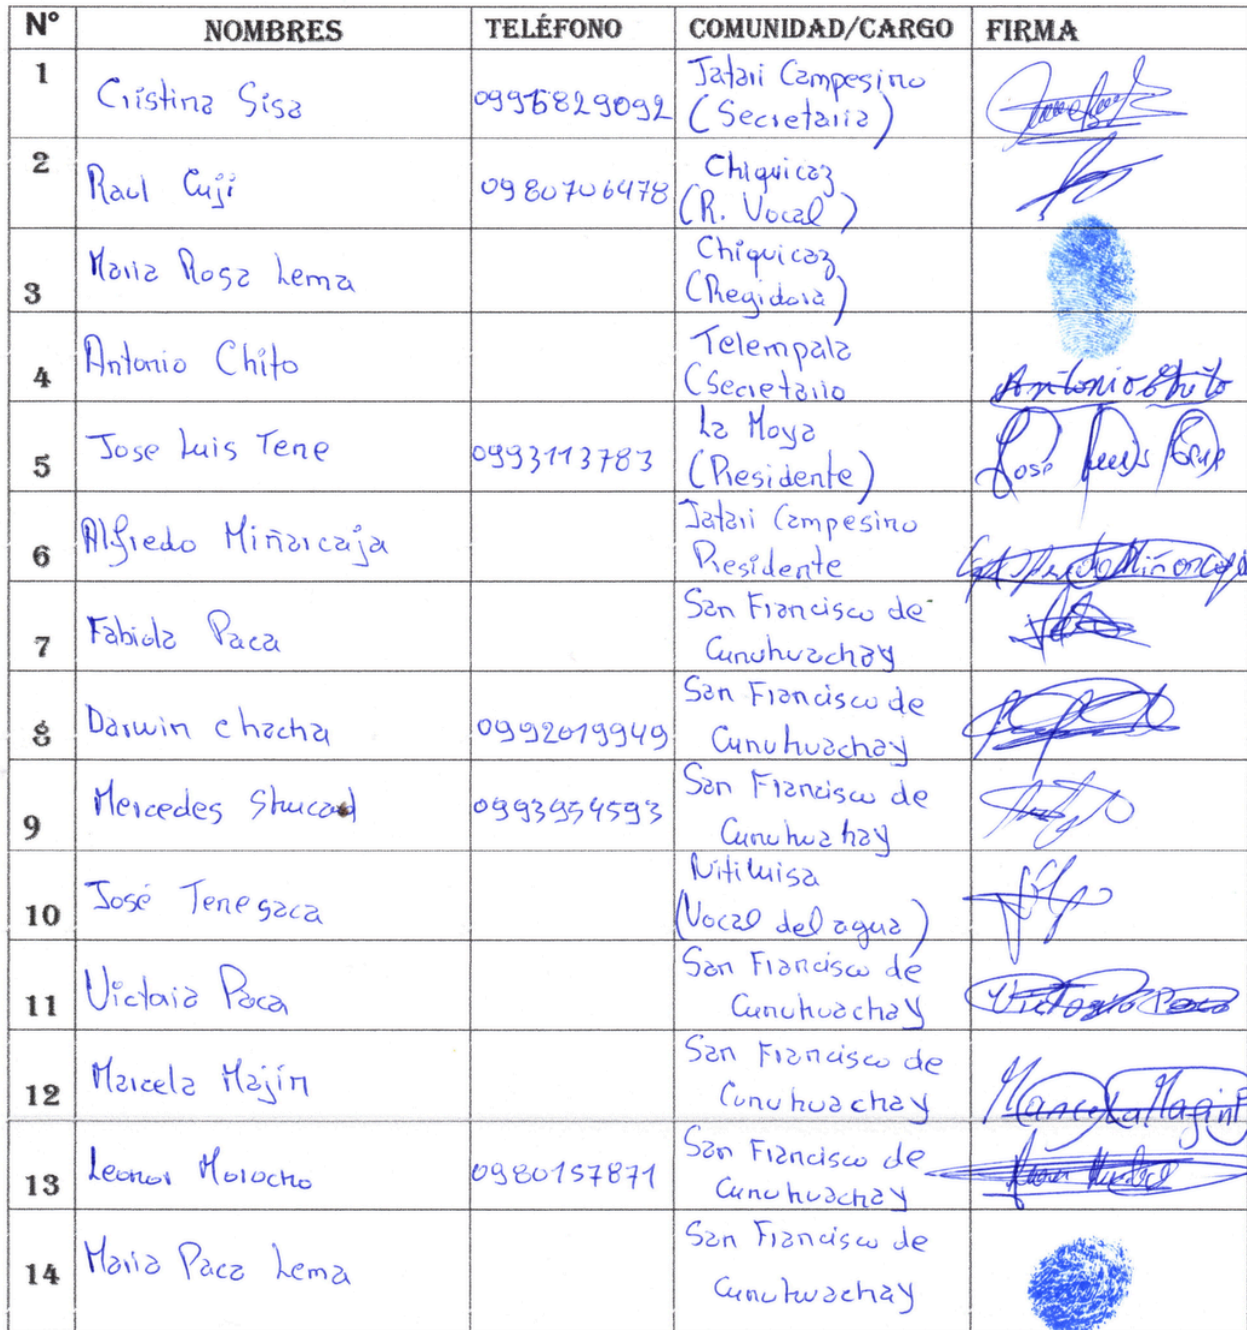 N° NOMBRES TELÉFONO COMUNIDAD/CARGO FIRMA
1 Cristina Sisa 0995829092 Jatari Campesino
(Secretaria)
2 Raul Cuji 0980706478 Chiquicaz
(R. Vocal)
3 Maria Rosa Lema Chiquicaz
(Regidora)
4 Antonio Chito Telempala
(Secretario Antonio Chito
5 Jose Luis Tene 0993113783 La Moya
(Presidente) José Luis Tene
6 Alfredo Miñarcaja Jatari Campesino
Presidente
7 Fabiola Paca San Francisco de
Cunuhuachay
8 Darwin chacha 0992019949 San Francisco de
Cunuhuachay
9 Mercedes 0993954593 San Francisco de
Cunuhuahay
10 José Tenesaca Nitiluisa
(Vocal del agua)
11 Victoria Paca San Francisco de
Cunuhuachay Victoria Paca
12 Marcela Majín San Francisco de
Cunuhuachay Marcela Magin
13 Leonor Morocho 0980157871 San Francisco de
Cunuhuachay
14 Maria Paca Lema San Francisco de
Cunuhuachay